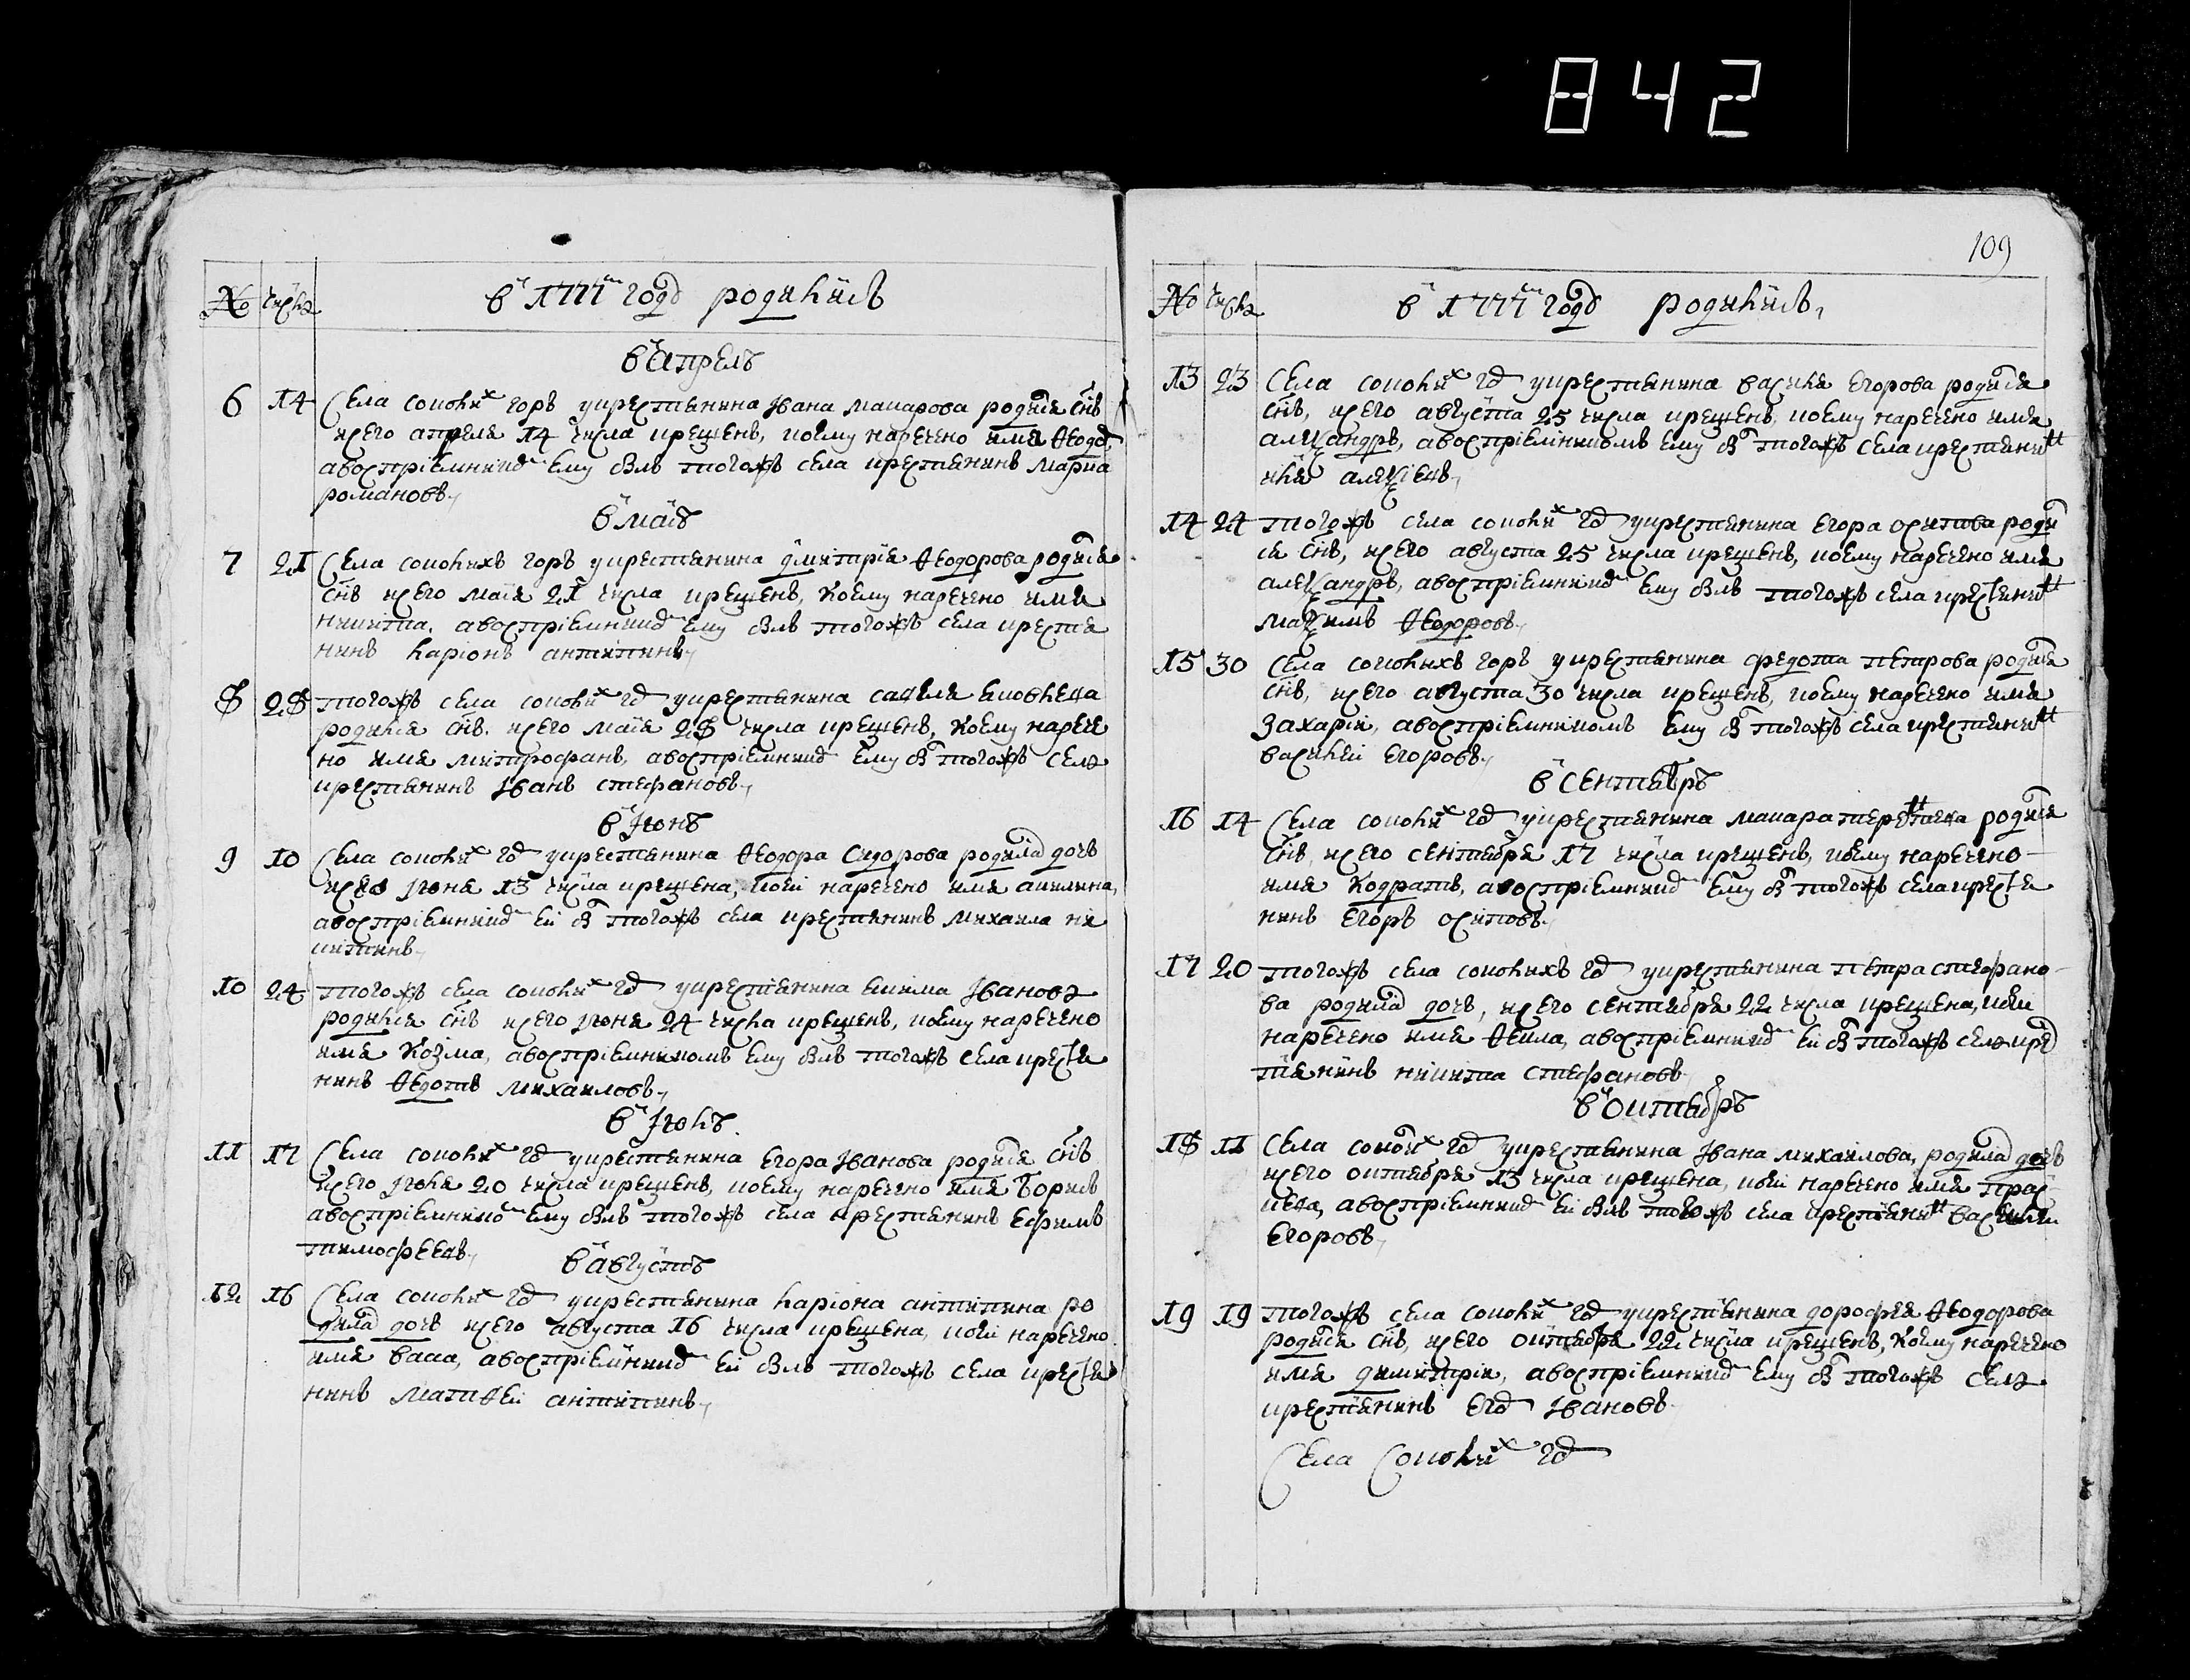 842
109
№ числа въ 1777м годѣ родились
въ апрелѣ
6 14 Села соколихъ горъ у крестьянина Iвана макарова родился снъ
и его апреля 14 числа крещенъ, коему наречено имя Ѳеодотъ
а воспрiемникомъ ему былъ тогожъ села крестьянинъ марка
романовъ
въ маiѣ
7 21 Села соколихъ горъ у крестьянина дмитрiя Ѳеодорова родился
снъ и его маiя 21 числа крещенъ, коему наречено имя
никита, а воспрiемникомъ ему былъ тогожъ села крестья
нинъ ларiонъ антипинъ
8 28 тогожъ села соколихъ горъ у крестьянина савеля
родился снъ, и его маiя 28 числа крещенъ, коему нарече
но имя митрофанъ, а воспрiемникомъ ему былъ тогожъ села
крестьянинъ Iванъ стефановъ
въ Iюнѣ
9 10 Села соколихъ горъ у крестьянина Ѳеодора Сидорова родилась дочь
и ее Iюня 13 числа крещена, коей наречено имя акилина,
а воспрiемникомъ ей былъ тогожъ села крестьянинъ михаила ни
китинъ
10 24 тогожъ села соколихъ горъ у крестьянина екима Iванова
родился снъ и его Iюня 24 числа крещенъ, коему наречено
имя козма, а воспрiемникомъ ему былъ тогожъ села крестья
нинъ Ѳедотъ михаиловъ
въ Iюлѣ
11 17 Села соколихъ горъ у крестьянина Егора Iванова родился снъ
и его Iюля 20 числа крещенъ, коему наречено имя Борисъ
а воспрiемникомъ ему былъ тогожъ села крестьянинъ Ефимъ
тимофеевъ
въ августѣ
12 16 Села соколихъ горъ у крестьянина ларiона антипина ро
дилась дочь и его августа 16 числа крещена, коей наречено
имя васса, а воспрiемникомъ ей былъ тогожъ села крестья
нинъ матѳей антипинъ
№ числа въ 1777м годѣ родились
13 23 Села соколихъ горъ у крестьянина василя Егорова родился
снъ, и его августа 25 числа крещенъ, коему наречено имя
алеѯандръ, а воспрiемникомъ ему былъ тогожъ села крестьянинъ
илiя алеѯiевъ
14 24 тогожъ села соколихъ горъ у крестьянина Егора осипова роди
ся снъ, и его августа 25 числа крещенъ, коему наречено имя
алеѯандръ, а воспрiемникомъ ему былъ тогожъ села крестьянинъ
маѯимъ Ѳеодоровъ
15 30 Села соколихъ горъ у крестьянина федота петрова родился
снъ, и его августа 30 числа крещенъ, коему наречено имя
Захарiи, а воспрiемникомъ ему былъ тогожъ села крестьянинъ
василей Егоровъ
въ Сентябрѣ
16 14 Села соколихъ горъ у крестьянина макара родился
снъ, и его сентября 17 числа крещенъ, коему наречено
имя кодратъ, а воспрiемникомъ ему былъ тогожъ села крестья
нинъ Егоръ осиповъ
17 20 тогожъ села соколихъ горъ у крестьянина петра стефано
ва родилась дочь, и его сентября 22 числа крещена, коей
наречено имя Ѳекла, а воспрiемникомъ ей былъ тогожъ села крес
тьянинъ никита стефановъ
въ октябрѣ
18 11 Села соколихъ горъ у крестьянина Iвана михаилова, родилась дочь
и его октября 13 числа крещена, коей наречено имя прас
кева, а воспрiемникомъ ей былъ тогожъ села крестьянинъ василей
Егоровъ
19 19 тогожъ села соколихъ горъ у крестьянина дорофея Ѳеодорова
родился снъ, и его октября 22 числа крещенъ, коему наречено
имя димитрiи, а воспрiемникомъ ему былъ тогожъ села
крестьянинъ Егоръ Iвановъ
Села Соколихъ горъ